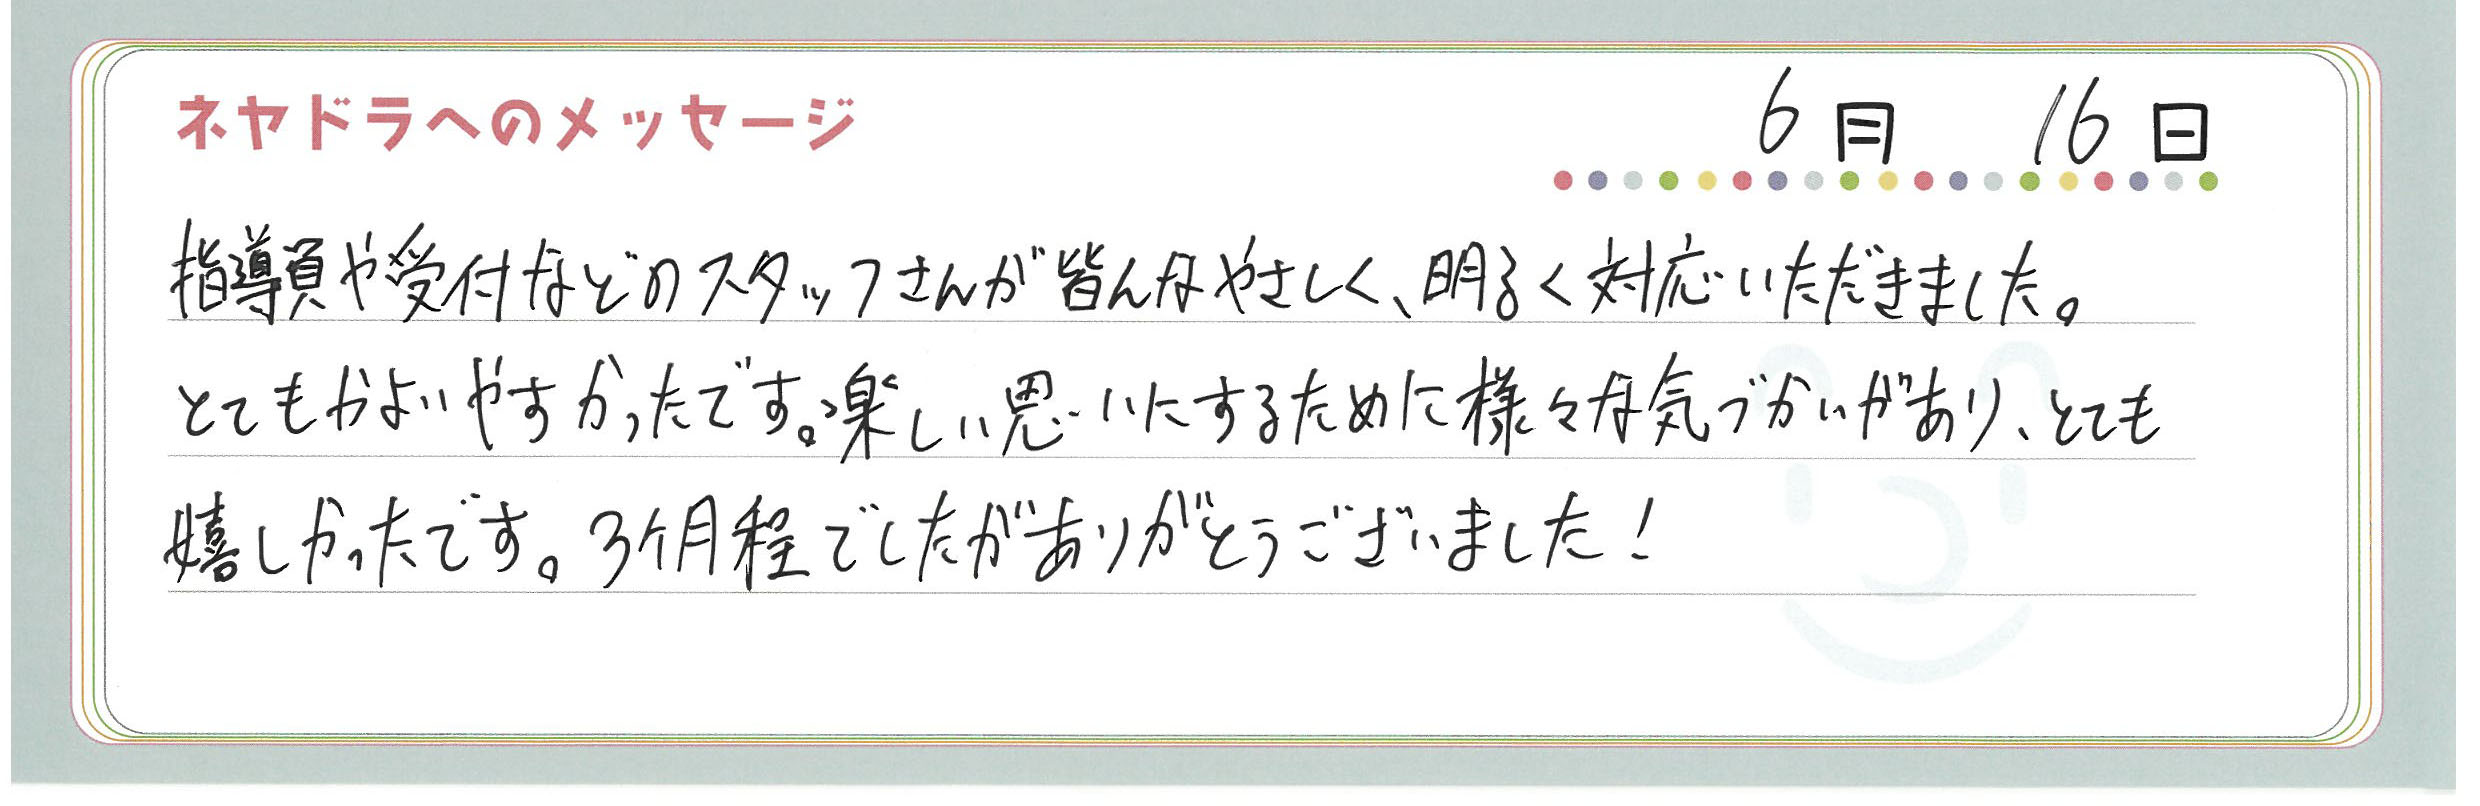 ネヤドラへのメッセージ
6月 16日
指導員や受付などのスタッフさんが皆んなやさしく、明るく対応いただきました。
とてもかよいやすかったです。楽しい思いにするために様々な気づかいがあり、とても
嬉しかったです。3ケ月程でしたがありがとうございました!